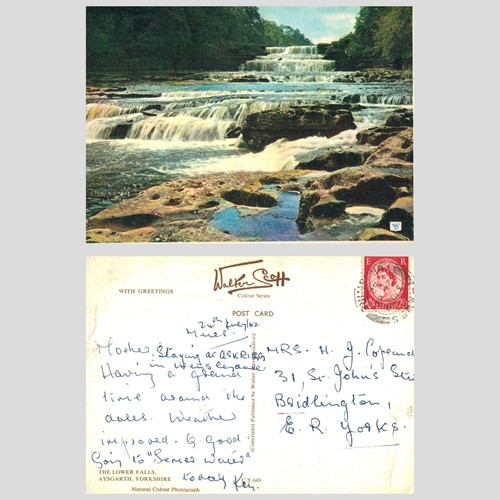 WITH GREETINGS
Walter Scott
Colour Series
POST CARD
E R
24th July/62
Staying at ASKRIGG
in Wensleydale
Having a Grand
time around the
dales. Weather
improved. & Good.
Going to "Semer Water"
today
MRS. H. J.
31, St. John's
Bridlington,
E. R. YORKS.
THE LOWER FALLS,
AYSGARTH, YORKSHIRE
Natural Colour Photograph
(Copyright) Published by Walter Scott, Bradford